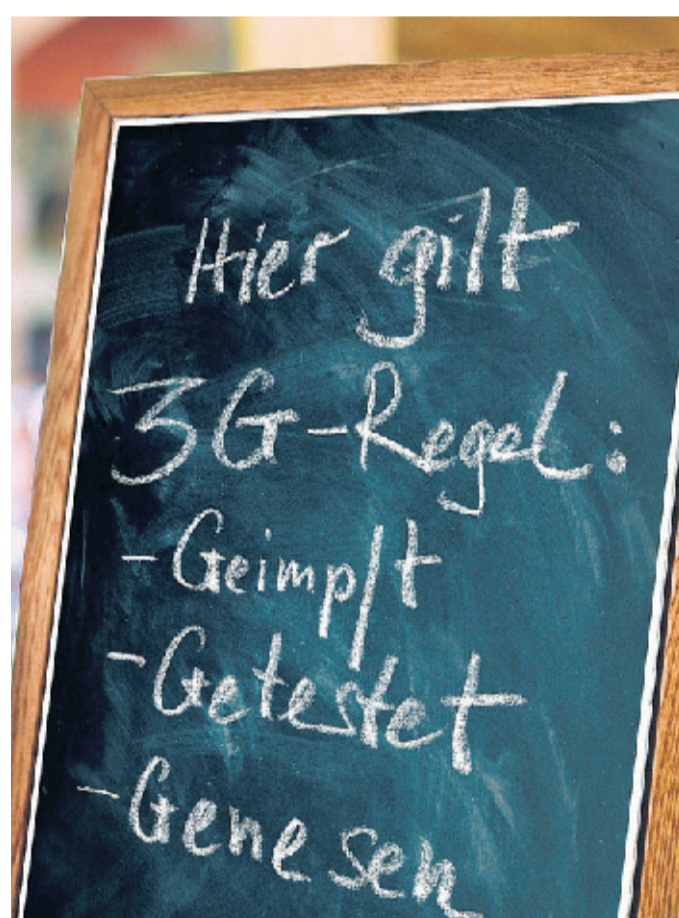 Hier gilt
3G-Regel:
-Geimpft
-Getestet
-Genesen